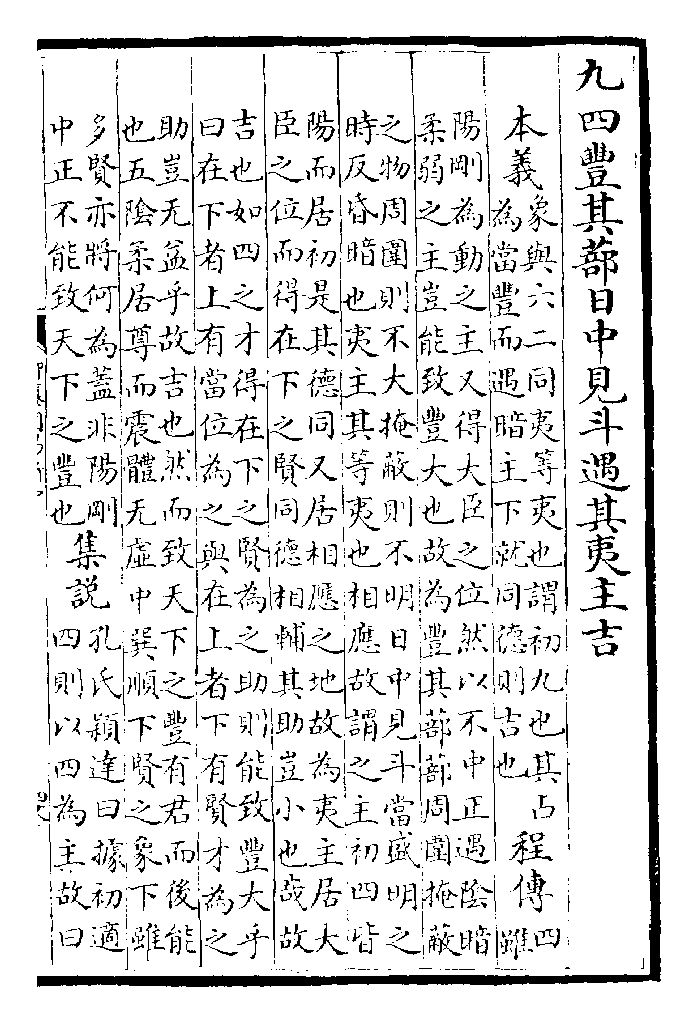 九四豐其蔀日中見斗遇其夷主吉
本義
象與六二同夷等夷也謂初九也其占
為當豐而遇暗主下就同德則吉也
程傳
四
雖
陽剛為動之主又得大臣之位然以不中正遇陰暗
柔弱之主豈能致豐大也故為豐其蔀蔀周圍掩蔽
之物周圍則不大掩蔽則不明日中見斗當盛明之
時反昏暗也夷主其等夷也相應故謂之主初四皆
陽而居初是其德同又居相應之地故為夷主居大
臣之位而得在下之賢同德相輔其助豈小也哉故
吉也如四之才得在下之賢為之助則能致豐大乎
曰在下者上有當位為之與在上者下有賢才為之
助豈无益乎故吉也然而致天下之豐有君而後能
也五陰柔居尊而震體无虛中巽順下賢之象下雖
多賢亦將何為蓋非陽剛
中正不能致天下之豐也
集説
孔氏穎達曰據初適
四則以四為主故曰